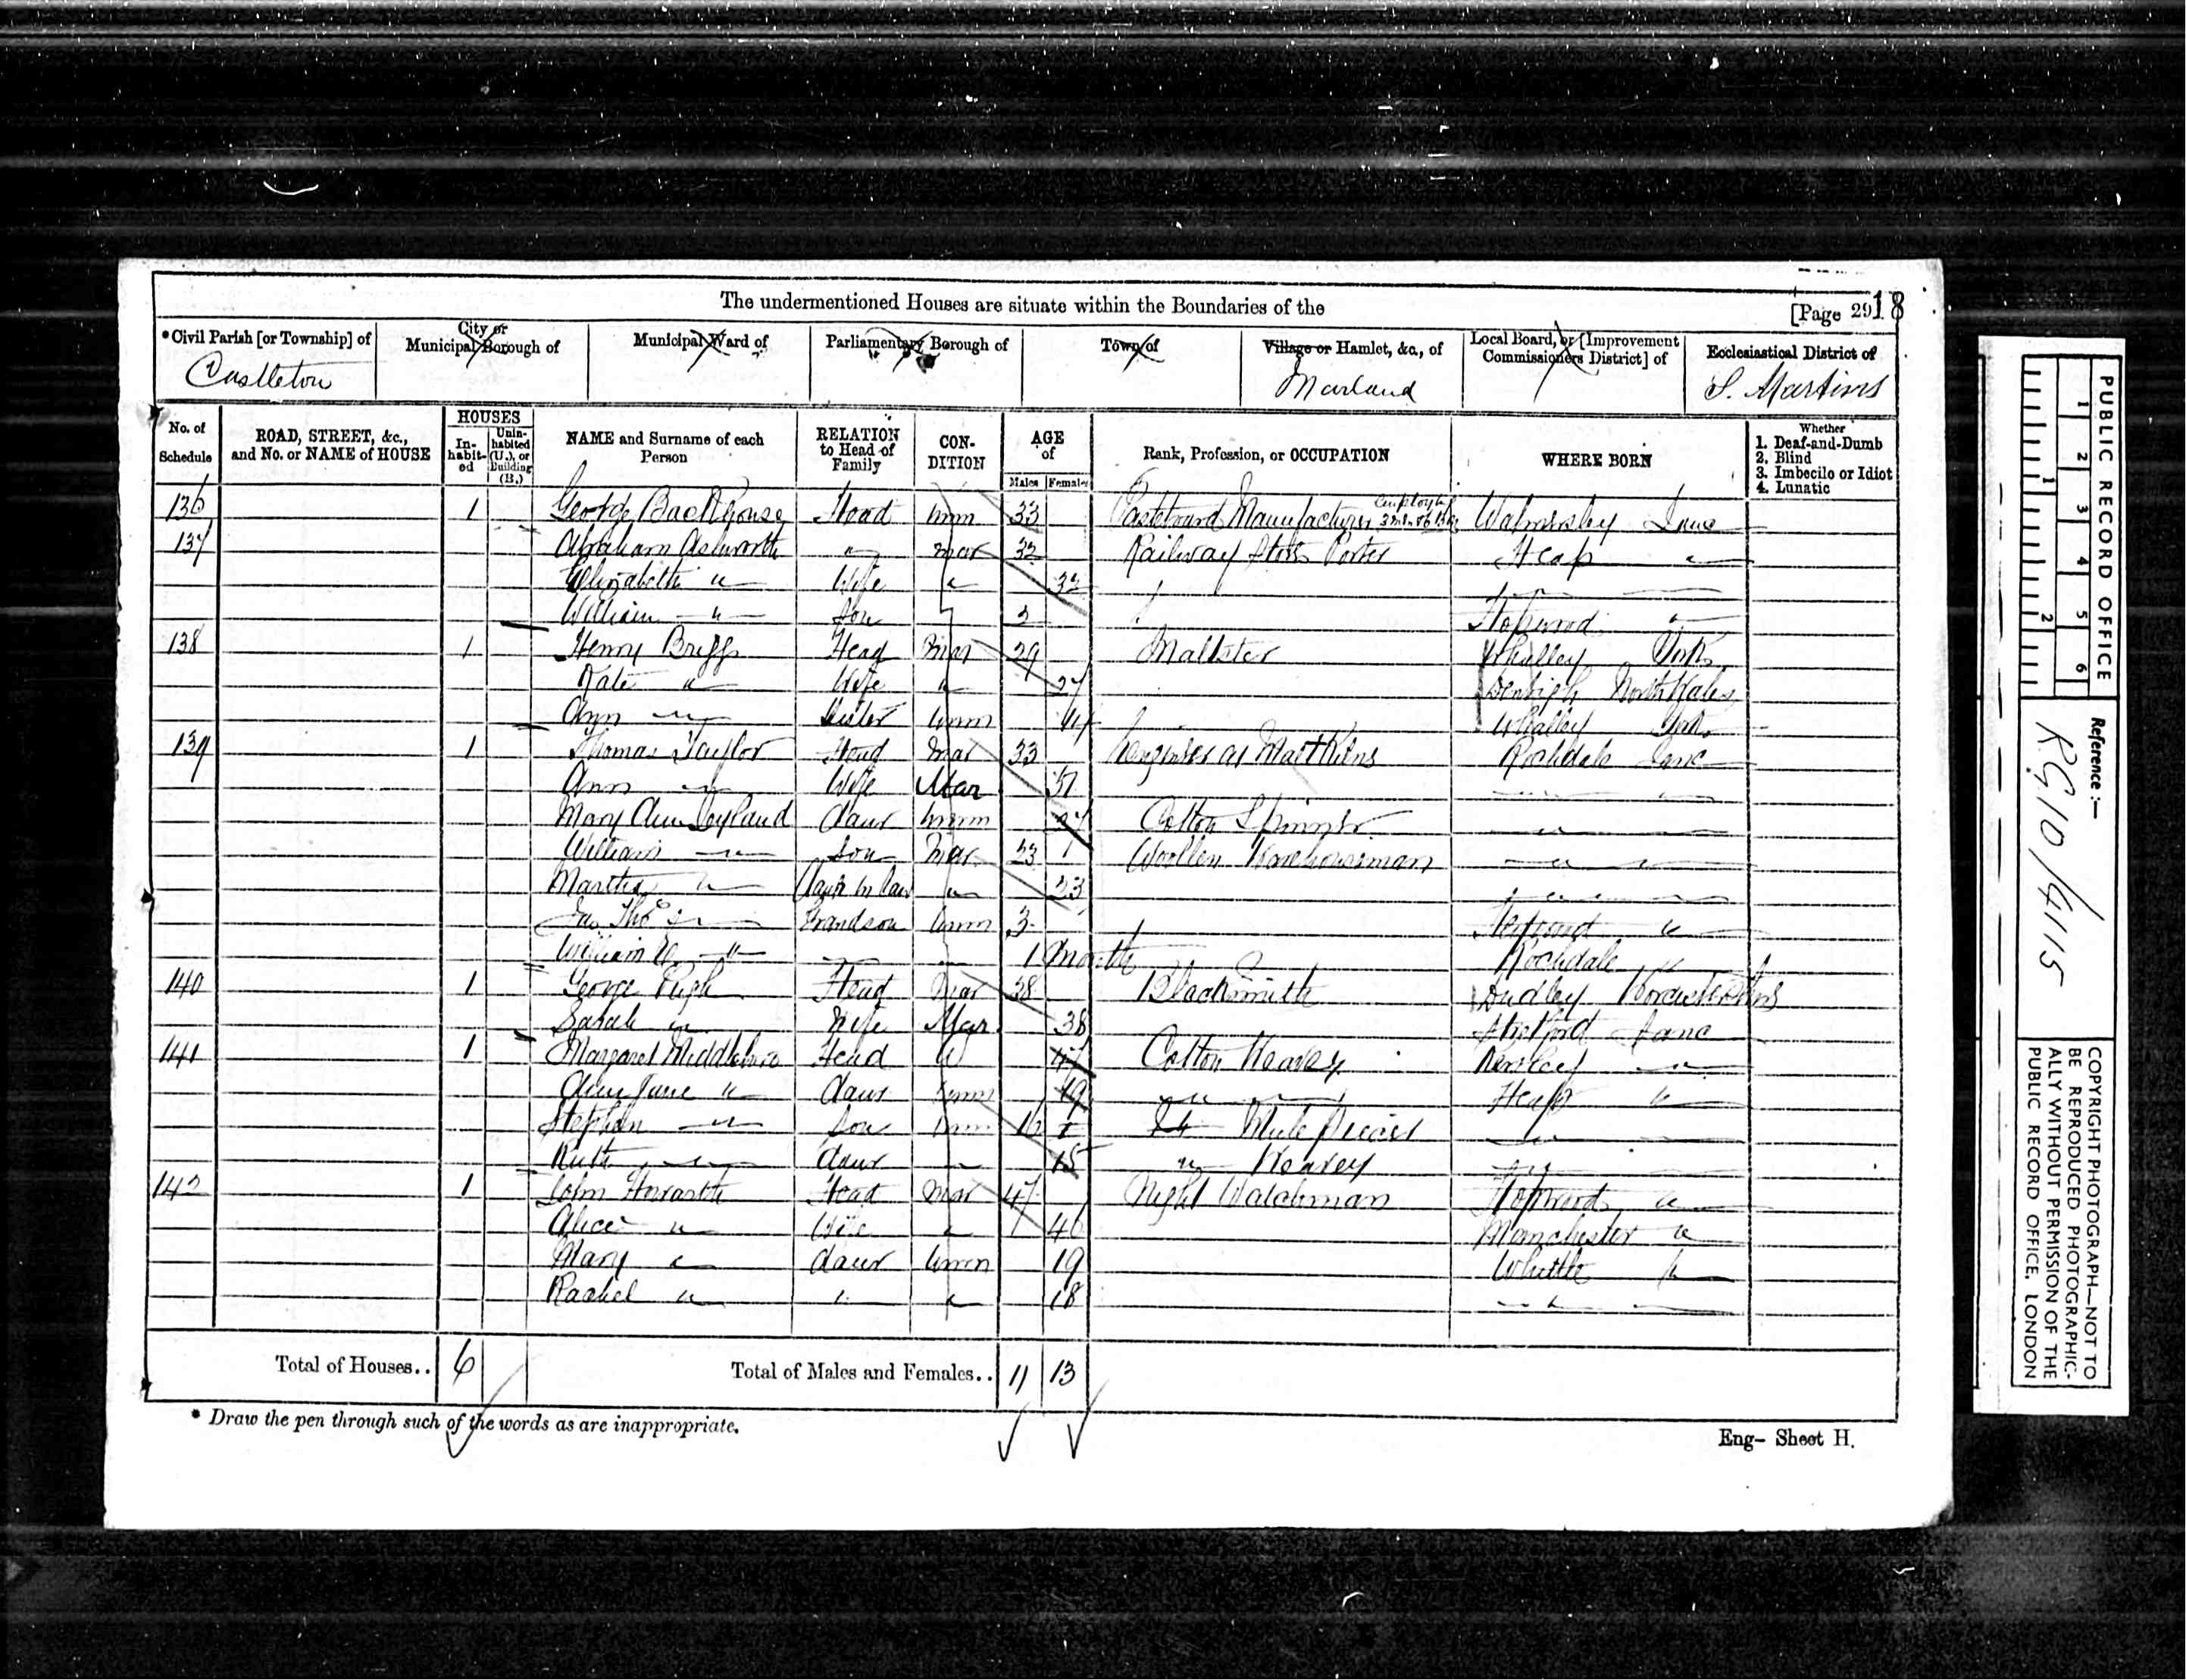 The undermentioned Houses are situate within the Boundaries of the
[Page 29 18
*Civil Parish [or Township] of
City or Municipal Borough of
Municipal Ward of
Parliamentary Borough of
Town of
Village or Hamlet, &c., of
Local Board, or [Improvement Commissioners District] of
Ecclesiastical District of
Castleton
Marland
S. Martins
No. of Schedule
ROAD, STREET, &c., and No. or NAME of HOUSE
HOUSES
In-habit-ed
Unin-habited (U.), or Building (B.)
NAME and Surname of each Person
RELATION to Head of Family
CON-DITION
AGE of
Males
Females
Rank, Profession, or OCCUPATION
WHERE BORN
Whether
1. Deaf-and-Dumb
2. Blind
3. Imbecile or Idiot
4. Lunatic
136 1 George Backhouse Head Unm 33 Manufacturer Walmersley Lanc
137 Abraham Ashworth " mar 32 Railway Porter Heap "
Elizabeth " Wife " 32
William " Son 2 Hopwood "
138 1 Henry Briggs Head Mar 29 Maltster Whalley York
Kate " Wife " 27 Denbigh North Wales
Ann " Sister Unm Whalley York
139 1 Thomas Taylor Head Mar 33 Rochdale Lanc
Ann " Wife Mar " "
Mary Ann Leyland daur Unm Cotton Spinner " "
William " Son Mar 23 Woollen Warehouseman " "
Martha " " 23 " "
Jas Thos " Grandson Unm 3 "
William " " " 1 Month Rochdale "
140 1 George Pugh Head Mar 38 Blacksmith Dudley
Sarah " Wife Mar 38 Stretford Lanc
141 1 Margaret Head W Cotton Weaver "
Ann Jane " daur Unm 19 " " Heap "
Stephen " Son Unm 16 Mule " "
Ruth " daur " 15 " Weaver " "
142 1 John Howarth Head Mar 47 Night Watchman Hopwood "
Alice " Wife " 46 Manchester "
Mary " daur Unm 19 Whittle "
Rachel " " " 18 " "
Total of Houses.. 6
Total of Males and Females.. 11 13
* Draw the pen through such of the words as are inappropriate.
Eng- Sheet H.
PUBLIC RECORD OFFICE
1 2 3 4 5 6
1 2
Reference:-
RG10/4115
COPYRIGHT PHOTOGRAPH—NOT TO
BE REPRODUCED PHOTOGRAPHIC-
ALLY WITHOUT PERMISSION OF THE
PUBLIC RECORD OFFICE, LONDON